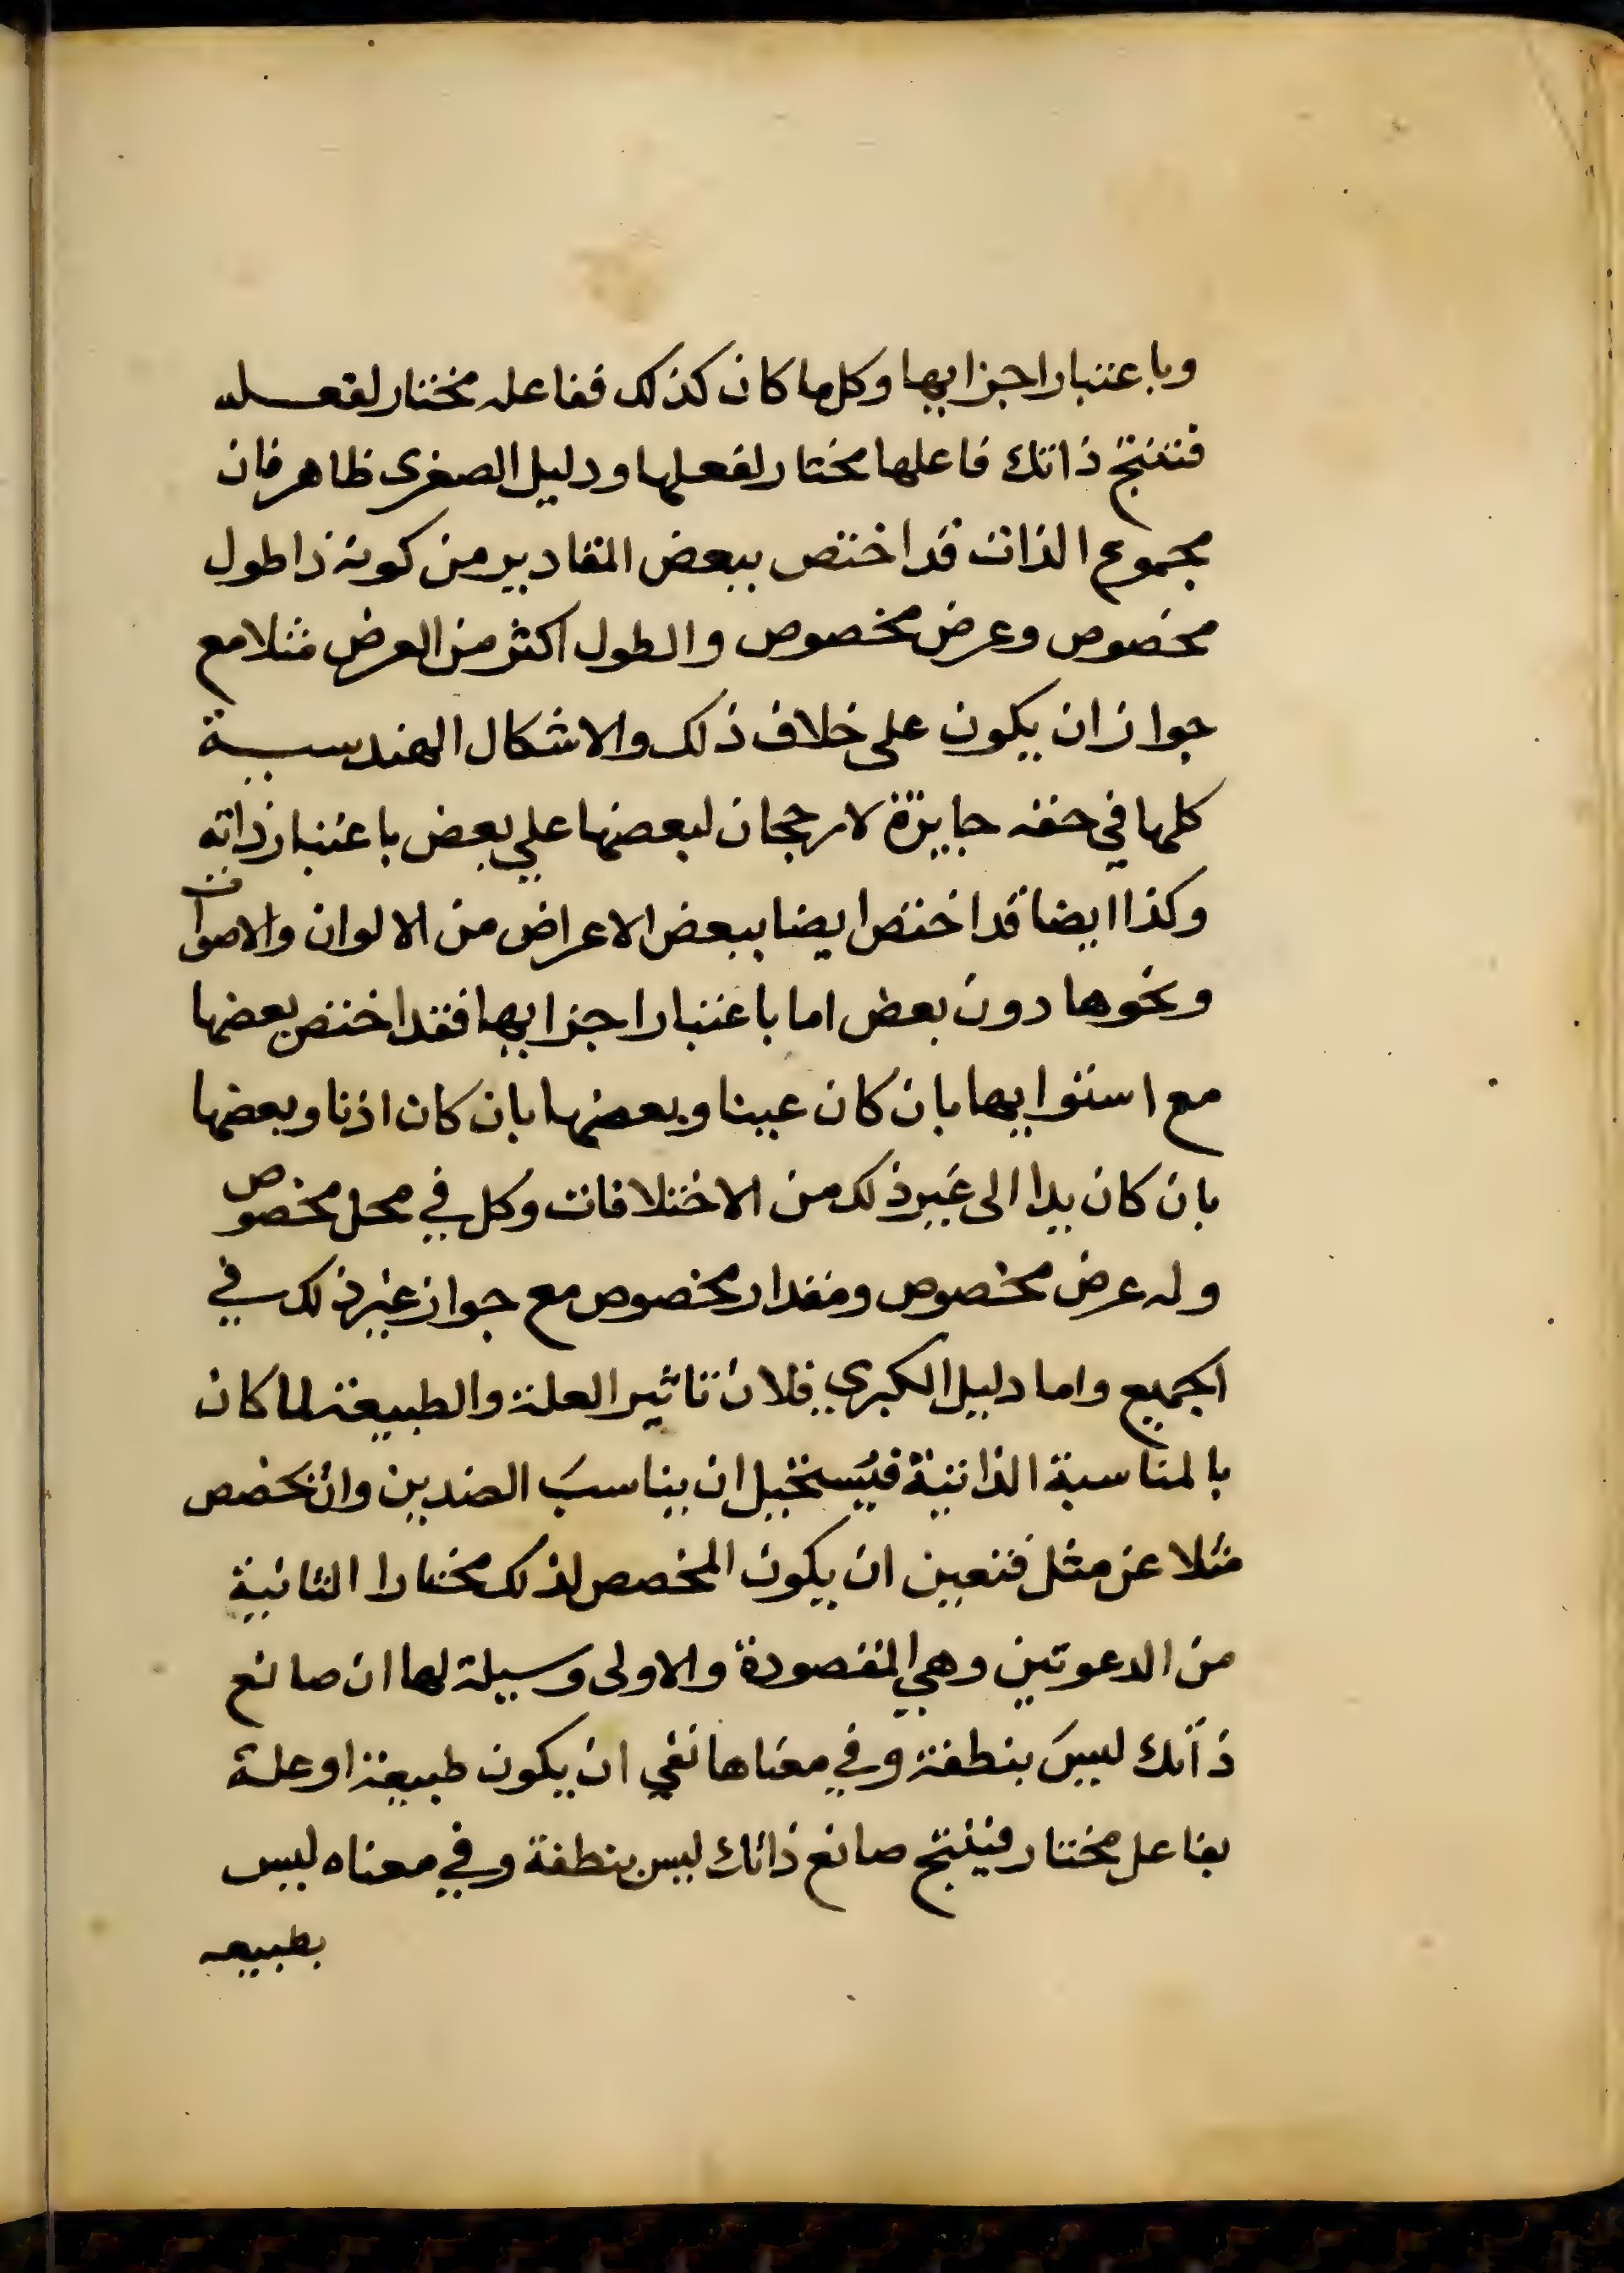 وباعتبار اجزايها وكل ما كان كذلك ففاعله مختار لفعله
فتنتج ذاتك فاعلها مختار لفعلها ودليل الصغرى ظاهر فان
مجموع الذات قد اختص ببعض المقادير من كونه ذا طول
مخصوص وعرض مخصوص والطول اكثر من العرض مثلا مع
جواز ان يكون على خلاف ذلك والاشكال الهندسية
كلها في حقه جايزة لا رجحان لبعضها علي بعض باعتبار ذاته
وكذا ايضا قد اختص ايضا ببعض الاعراض من الالوان والاصوات
ونحوها دون بعض اما باعتبار اجزايها فقد اختص بعضها
مع استوايها بان كان عينا وبعضها بان كان اذنا وبعضها
بان كان يدا الى غير ذلك من الاختلافات وكل في محل مخصوص
وله عرض مخصوص ومقدار مخصوص مع جواز غير ذلك في
الجميع واما دليل الكبري فلان تاثير العلة والطبيعة لما كان
بالمناسبة الذاتية فيستحيل ان يناسب الضدين وان تخصص
مثلا عن مثل فتعين ان يكون المخصص لذلك مختارا الثانية
من الدعوتين وهي المقصودة والاولى وسيلة لها ان صانع
ذاتك ليس بنطفة وفي معناها نفي ان يكون طبيعة او علة
بفاعل مختار فينتج صانع ذاتك ليس بنطفة وفي معناه ليس
بطبيعه